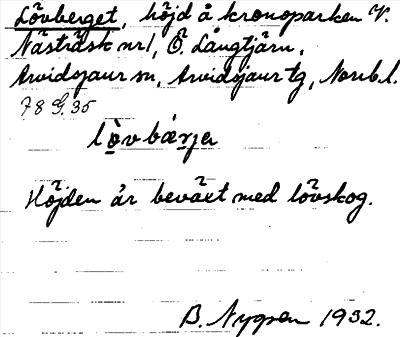 Lövberget, höjd å kronoparken V.
Nästräsk nr 1, Ö. Långtjärn,
Arvidsjaur sn, Arvidsjaur tg, Norrb.l.
78 G. 35
lo̱vbærja
Höjden är beväxt med lövskog.
B. Nygren 1932.